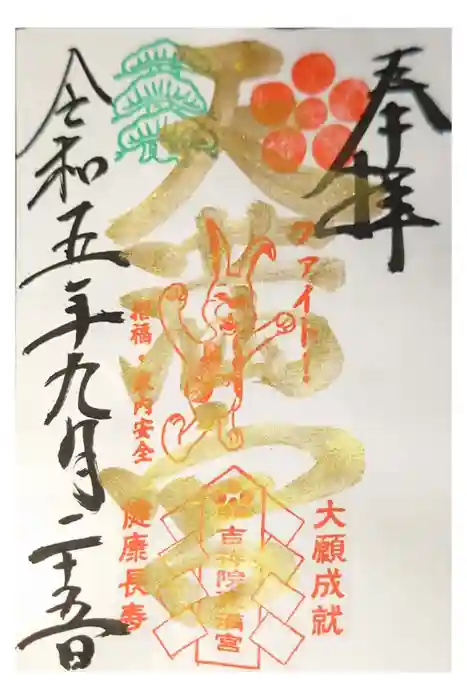 奉拝
天満宮
ファイト!
招福・家内安全
大願成就
吉祥院天満宮
健康長寿
令和五年九月二十五日